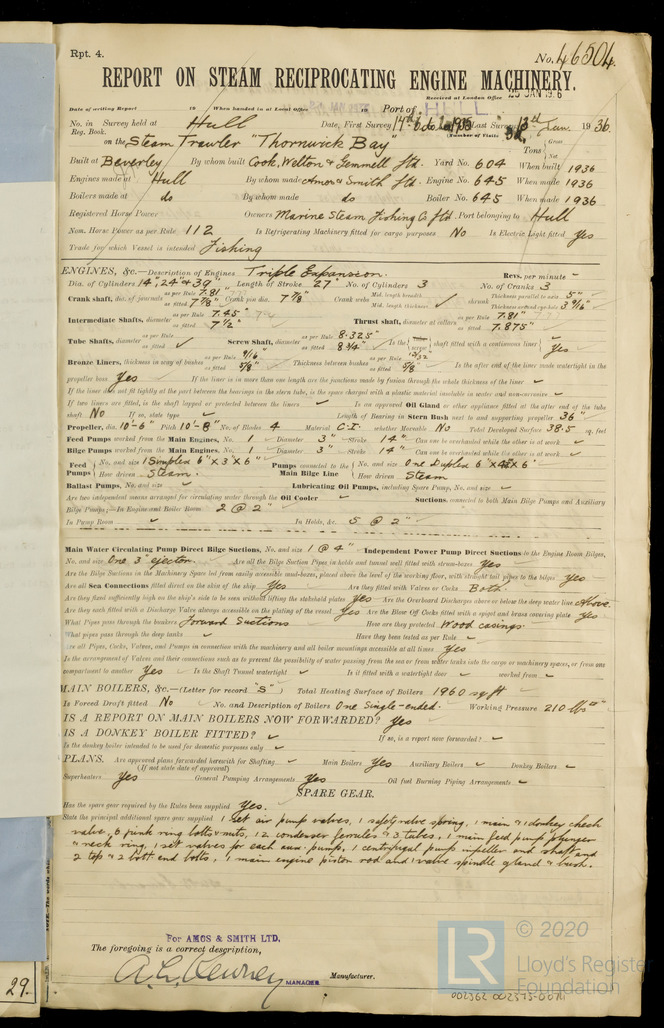 Rpt. 4.
No. 46504.
REPORT ON STEAM RECIPROCATING ENGINE MACHINERY.
Received at London Office 25 JAN 1936
Date of writing Report 19 When handed in at Local Office 19 Port of HULL
No. in Survey held at Hull Date, First Survey 14th Oct 1935 Last Survey 13th Jan. 1936
Reg. Book. (Number of Visits
on the Steam Trawler "Thornwick Bay" Tons Gross Net
Built at Beverley By whom built Cook, Welton & Gemmell Ltd. Yard No. 604 When built 1936
Engines made at Hull By whom made Amos & Smith Ltd. Engine No. 645 When made 1936
Boilers made at do By whom made do Boiler No. 645 When made 1936
Registered Horse Power Owners Marine Steam Fishing Co Ltd. Port belonging to Hull
Nom. Horse Power as per Rule 112 Is Refrigerating Machinery fitted for cargo purposes No Is Electric Light fitted Yes
Trade for which Vessel is intended Fishing
ENGINES, &c.—Description of Engines Triple Expansion. Revs. per minute –
Dia. of Cylinders 14", 24" & 39" Length of Stroke 27" No. of Cylinders 3 No. of Cranks 3
Crank shaft, dia. of journals as per Rule 7.81" as fitted 7 7/8" Crank pin dia. 7 7/8" Crank webs Mid. length breadth Mid. length thickness ✓ shrunk Thickness parallel to axis 5" Thickness around eye-hole 3 9/16"
Intermediate Shafts, diameter as per Rule 7.45" as fitted 7 1/2" Thrust shaft, diameter at collars as per Rule 7.81" as fitted 7.875"
Tube Shafts, diameter as per Rule as fitted ✓ Screw Shaft, diameter as per Rule 8.325" as fitted 8 3/4" Is the screw shaft fitted with a continuous liner Yes
Bronze Liners, thickness in way of bushes as per Rule 9/16" as fitted 5/8" Thickness between bushes as per Rule as fitted 5/8" Is the after end of the liner made watertight in the
propeller boss Yes If the liner is in more than one length are the junctions made by fusion through the whole thickness of the liner ✓
If the liner does not fit tightly at the part between the bearings in the stern tube, is the space charged with a plastic material insoluble in water and non-corrosive ✓
If two liners are fitted, is the shaft lapped or protected between the liners ✓ Is an approved Oil Gland or other appliance fitted at the after end of the tube
shaft No If so, state type ✓ Length of Bearing in Stern Bush next to and supporting propeller 36"
Propeller, dia. 10'-6" Pitch 10'-8" No. of Blades 4 Material C.I. whether Moveable No Total Developed Surface 38.5 sq. feet
Feed Pumps worked from the Main Engines, No. 1 Diameter 3" Stroke 14" Can one be overhauled while the other is at work ✓
Bilge Pumps worked from the Main Engines, No. 1 Diameter 3" Stroke 14" Can one be overhauled while the other is at work ✓
Feed Pumps No. and size 1 Simplex 6" x 3" x 6" How driven Steam. Pumps connected to the Main Bilge Line No. and size One Duplex How driven Steam
Ballast Pumps, No. and size ✓ Lubricating Oil Pumps, including Spare Pump, No. and size ✓
Are two independent means arranged for circulating water through the Oil Cooler ✓ Suctions, connected to both Main Bilge Pumps and Auxiliary
Bilge Pumps;—In Engine and Boiler Room 2 @ 2"
In Pump Room ✓ In Holds, &c. 5 @ 2"
Main Water Circulating Pump Direct Bilge Suctions, No. and size 1 @ 4" Independent Power Pump Direct Suctions to the Engine Room Bilges,
No. and size One 3" ejector. Are all the Bilge Suction Pipes in holds and tunnel well fitted with strum-boxes Yes
Are the Bilge Suctions in the Machinery Space led from easily accessible mud-boxes, placed above the level of the working floor, with straight tail pipes to the bilges Yes
Are all Sea Connections fitted direct on the skin of the ship Yes Are they fitted with Valves or Cocks Both.
Are they fixed sufficiently high on the ship's side to be seen without lifting the stokehold plates Yes Are the Overboard Discharges above or below the deep water line Above
Are they each fitted with a Discharge Valve always accessible on the plating of the vessel Yes Are the Blow Off Cocks fitted with a spigot and brass covering plate Yes
What Pipes pass through the bunkers Forward Suctions How are they protected Wood casings.
What pipes pass through the deep tanks ✓ Have they been tested as per Rule ✓
Are all Pipes, Cocks, Valves, and Pumps in connection with the machinery and all boiler mountings accessible at all times Yes
Is the arrangement of Valves and their connections such as to prevent the possibility of water passing from the sea or from water tanks into the cargo or machinery spaces, or from one
compartment to another Yes Is the Shaft Tunnel watertight ✓ Is it fitted with a watertight door ✓ worked from ✓
MAIN BOILERS, &c.—(Letter for record "S") Total Heating Surface of Boilers 1960 sq ft
Is Forced Draft fitted No No. and Description of Boilers One Single-ended. Working Pressure 210 lbs
IS A REPORT ON MAIN BOILERS NOW FORWARDED? Yes
IS A DONKEY BOILER FITTED? ✓ If so, is a report now forwarded? ✓
Is the donkey boiler intended to be used for domestic purposes only ✓
PLANS. Are approved plans forwarded herewith for Shafting ✓ Main Boilers Yes Auxiliary Boilers ✓ Donkey Boilers ✓
(If not state date of approval)
Superheaters Yes General Pumping Arrangements Yes Oil fuel Burning Piping Arrangements ✓
SPARE GEAR.
Has the spare gear required by the Rules been supplied Yes.
State the principal additional spare gear supplied 1 set air pump valves, 1 safety valve spring, 1 main & 1 donkey check
valve, 6 junk ring bolts & nuts, 12 condenser ferrules & 3 tubes, 1 main feed pump plunger
& neck ring, 1 set valves for each aux. pump, 1 centrifugal pump impeller and shaft and
2 top & 2 bott. end bolts, 1 main engine piston rod and valve spindle gland & bush.
For AMOS & SMITH LTD.
The foregoing is a correct description,
MANAGER Manufacturer.
29.
© 2020
LR
Lloyd's Register
Foundation
002362 002375-0071